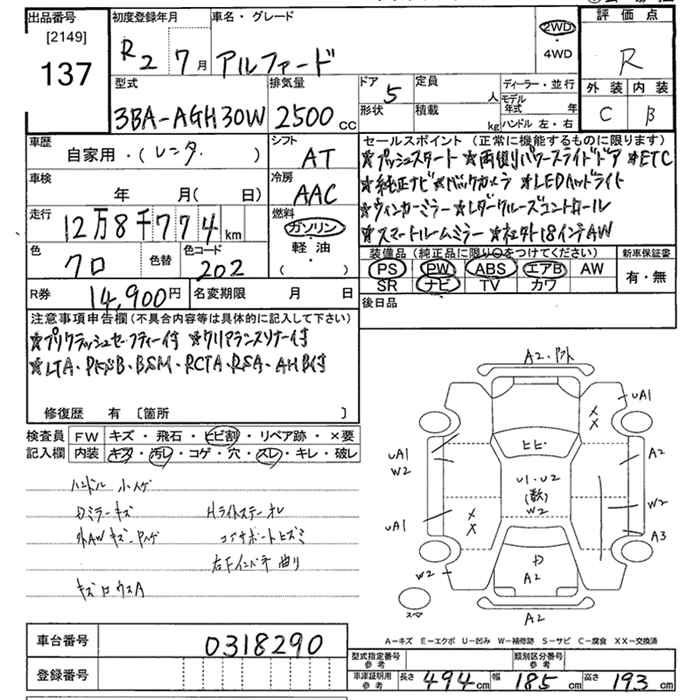 出品番号
[2149]
137
初度登録年月
R2 7月
車名・グレード
アルファード
2WD
・
4WD
評価点
R
外装 内装
C B
型式
3BA-AGH30W
排気量
2500cc
ドア
5
形状
定員
人
積載
kg
ディーラー・並行
モデル年式 年
ハンドル 左・右
車歴
自家用・(レンタ )
シフト
AT
車検
年 月( 日)
冷房
AAC
走行
12万8千774km
燃料
ガソリン
軽・油
( )
色
クロ
色替
色コード
202
R券
14,900円
名変期限 月 日
セールスポイント (正常に機能するものに限ります)
★プッシュスタート ★両側パワースライドドア ★ETC
★純正ナビ ★バックカメラ ★LEDヘッドライト
★ウィンカーミラー ★レダークルーズコントロール
★スマートルームミラー ★社外18インチAW
装備品 (純正品に限り○をつけてください)
PS PW ABS エアB AW
SR ナビ TV カワ
新車保証書
有・無
後日品
注意事項申告欄(不具合内容等は具体的に記入して下さい)
★プリクラッシュセーフティー付 ★クリアランスソナー付
★LTA・PKSB・BSM・RCTA・RSA・AHB付
修復歴 有 〔箇所 〕
検査員
記入欄
FW キズ・飛石・ヒビ割・リペア跡・×要
内装 キズ・汚レ・コゲ・穴・スレ・キレ・破レ
ハンドル 小ハゲ
Dミラーキズ Hライトステーオレ
外AWキズ・ハゲ コアサポートヒズミ
右下インパネ曲り
キズロウスA
A2・アト
UA1
××
ヒビ
UA1
W2
A2
U1・U2
(数)
W2
W2
UA1
××
A3
W2
A2
スマ
A2
A-キズ E-エクボ U-凹み W-補修跡 S-サビ C-腐食 XX-交換済
車台番号
0318290
登録番号
型式指定番号
参考
類別区分番号
参考
車庫証明用
参考
長さ 494cm 幅 185cm 高さ 193cm